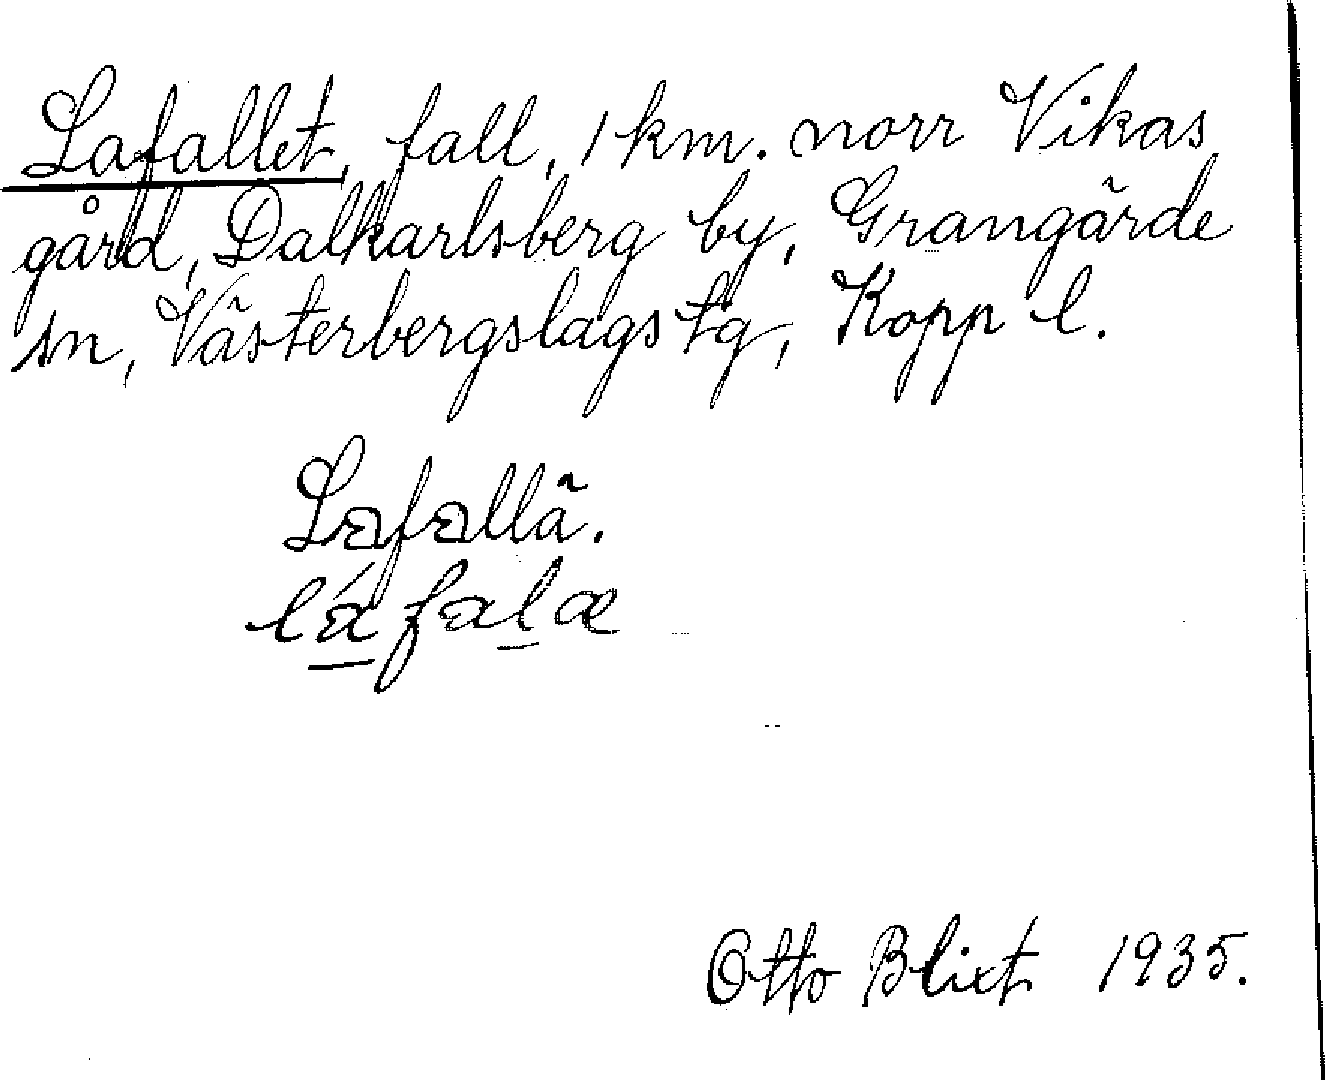 Lafallet, fall, 1 km. norr Vikas
gård, Dalkarlsberg by, Grangärde
sn, Västerbergslags tg, Kopp l.
Lafallä.
láfalæ
Otto Blixt 1935.